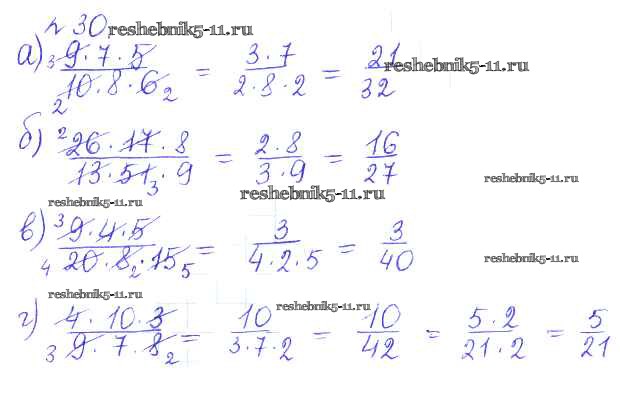 № 30 reshebnik5-11.ru
а) 3 9 · 7 · 5 / 2 10 · 8 · 6 2 = 3 · 7 / 2 · 8 · 2 = 21 / 32 reshebnik5-11.ru
б) 2 26 · 17 · 8 / 13 · 51 3 · 9 = 2 · 8 / 3 · 9 = 16 / 27 reshebnik5-11.ru
reshebnik5-11.ru reshebnik5-11.ru
в) 3 9 · 4 · 5 / 4 20 · 8 2 · 15 5 = 3 / 4 · 2 · 5 = 3 / 40 reshebnik5-11.ru
reshebnik5-11.ru reshebnik5-11.ru
г) 4 · 10 · 3 / 3 9 · 7 · 8 2 = 10 / 3 · 7 · 2 = 10 / 42 = 5 · 2 / 21 · 2 = 5 / 21